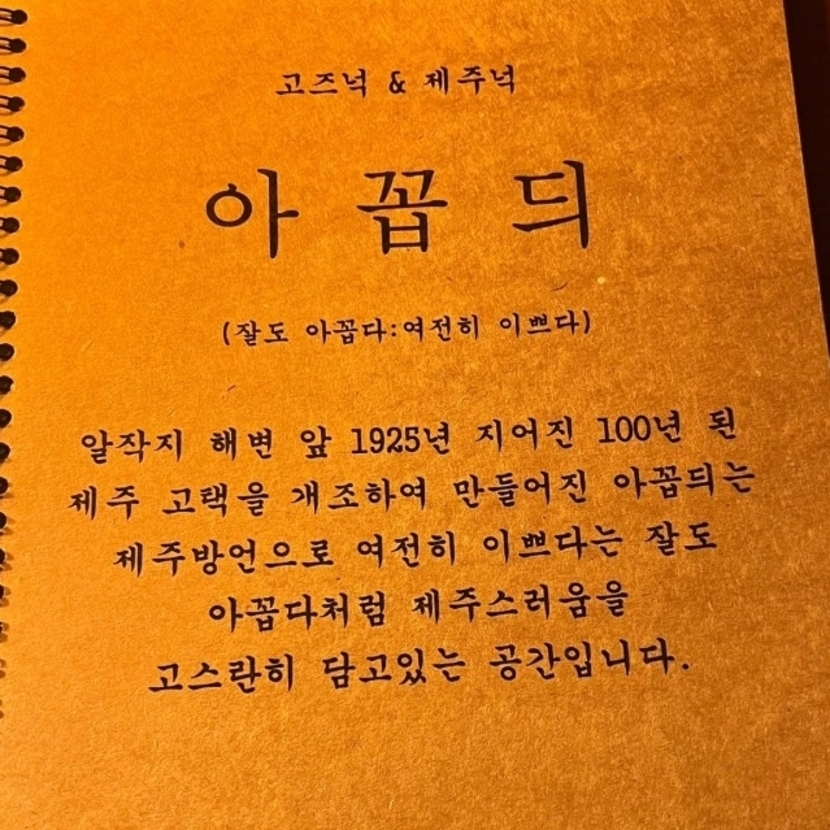 고즈넉 & 제주넉
아꼽듸
(잘도 아꼽다:여전히 이쁘다)
알작지 해변 앞 1925년 지어진 100년 된
제주 고택을 개조하여 만들어진 아꼽듸는
제주방언으로 여전히 이쁘다는 잘도
아꼽다처럼 제주스러움을
고스란히 담고있는 공간입니다.